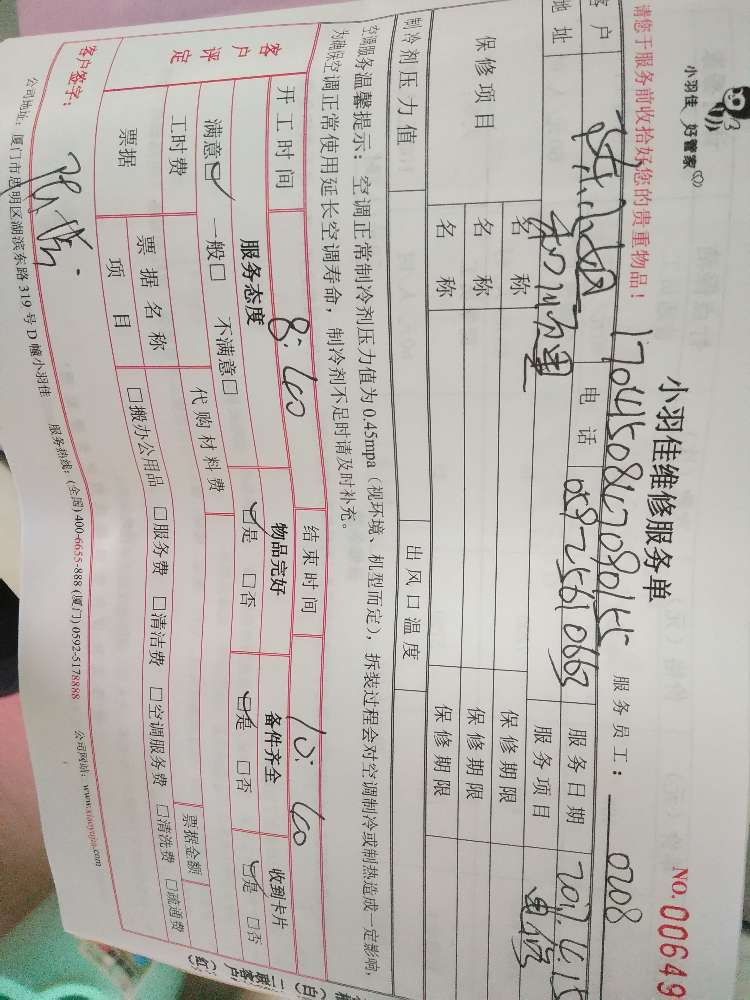 小羽佳 好管家
小羽佳维修服务单
NO.00649
请您于服务前收拾好您的贵重物品！
服务员工：0208
客户
电话
服务日期
地址
服务项目
保修项目
名称
保修期限
名称
保修期限
名称
保修期限
制冷剂压力值
出风口温度
空调服务温馨提示：空调正常制冷剂压力值为0.45mpa（视环境、机型而定），拆装过程会对空调制冷或制热造成一定影响，
为确保空调正常使用延长空调寿命，制冷剂不足时请及时补充。
开工时间 8:40 结束时间 10:40
客户评定
服务态度 物品完好 备件齐全 收到卡片
满意□ 一般□ 不满意□ □是 □否 □是 □否 □是 □否
工时费 代购材料费
票据
票据名称 票据金额
项目 □搬办公用品 □服务费 □清洁费 □空调服务费 □清洗费 □疏通费
客户签字：
公司地址：厦门市思明区湖滨东路319号D幢小羽佳 服务热线：(全国)400-6655-888 (厦门)0592-5178888 公司网站：www.xiaoyujia.com